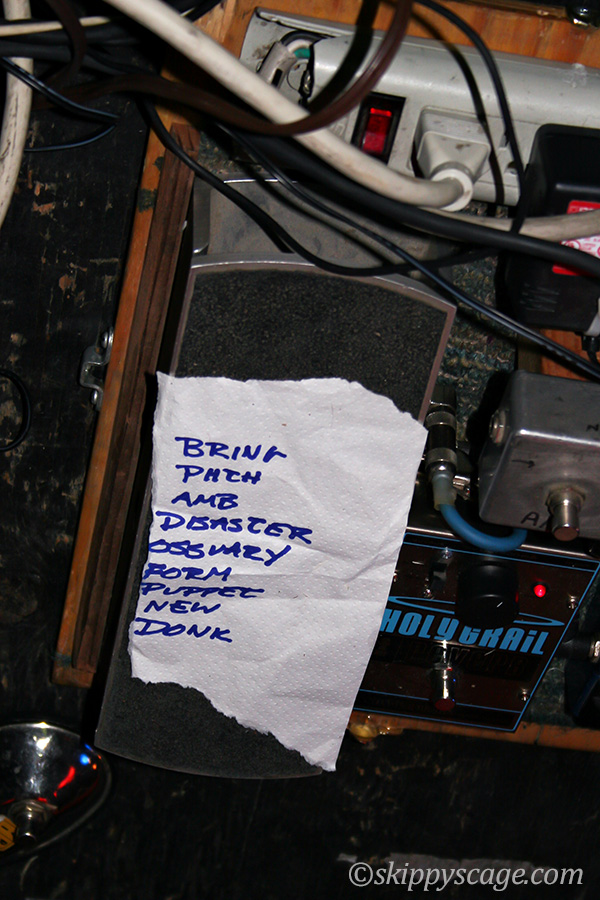 BRING
PATCH
AMB
DISASTER
OSSUARY
FORM
PUPPET
NEW
DONK
HOLY GRAIL
©skippyscage.com